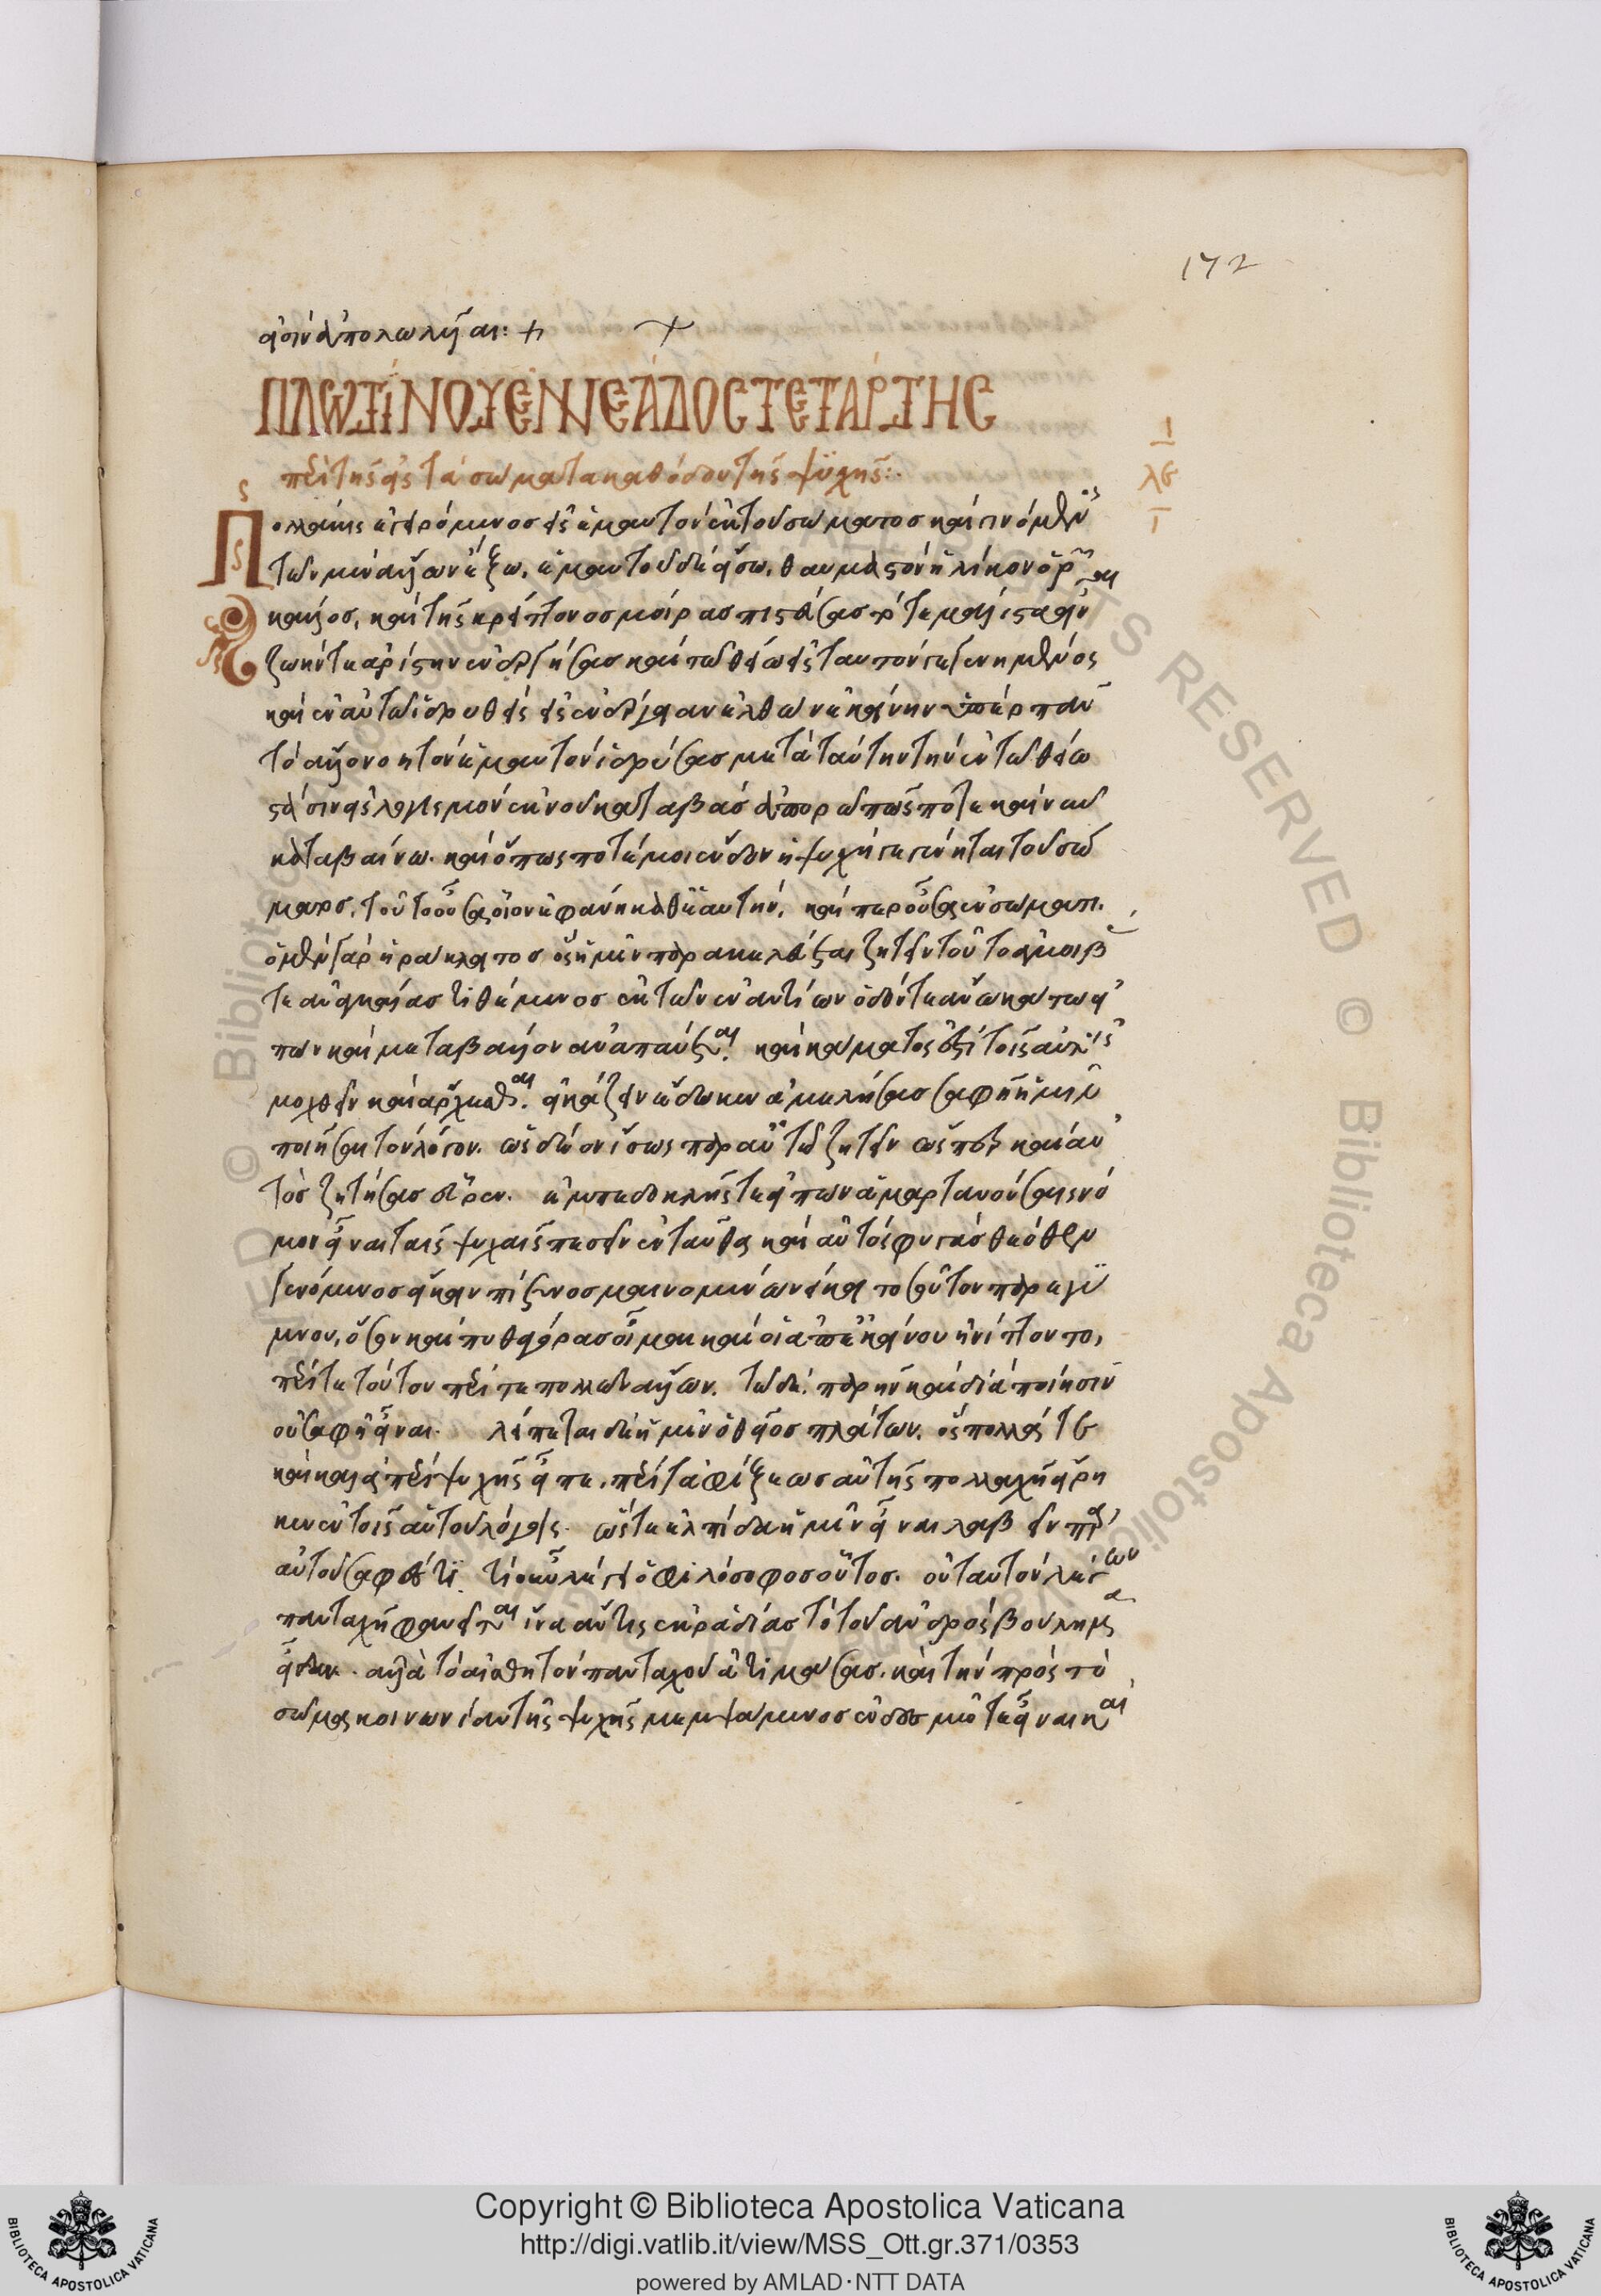 172
εἰσὶν ἀπολωλῆσαι: +
ΠΛΩΤΙΝΟΥ ΕΝΝΕΑΔΟΣ ΤΕΤΑΡΤΗΣ
περὶ τῆς εἰς τὰ σώματα καθόδου τῆς ψυχῆς:
Πολλάκις ἐγειρόμενος εἰς ἐμαυτὸν ἐκ τοῦ σώματος καὶ γινόμενος
τῶν μὲν ἄλλων ἔξω, ἐμαυτοῦ δὲ εἴσω, θαυμαστὸν ἡλίκον ὁρῶν
κάλλος, καὶ τῆς κρείττονος μοίρας πιστεύσας τότε μάλιστα εἶναι
ζωήν τε ἀρίστην ἐνεργήσας καὶ τῷ θείῳ εἰς ταυτὸν γεγενημένος
καὶ ἐν αὐτῷ ἱδρυθεὶς εἰς ἐνέργειαν ἐλθὼν ἐκείνην ὑπὲρ πᾶν
τὸ ἄλλο νοητὸν ἐμαυτὸν ἱδρύσας μετὰ ταύτην τὴν ἐν τῷ θείῳ
στάσιν εἰς λογισμὸν ἐκ νοῦ καταβὰς ἀπορῶ πῶς ποτε καὶ νῦν
καταβαίνω. καὶ ὅπως ποτέ μοι ἔνδον ἡ ψυχὴ γεγένηται τοῦ σώ
ματος, τοῦτο οὖσα οἷον ἐφάνη καθ' ἑαυτήν, καὶ περ οὖσα ἐν σώματι.
ὁ μὲν γὰρ ἡράκλειτος ὃς ἡμῖν παρακελεύεται ζητεῖν τοῦτο ἀμοιβάς
τε ἀναγκαίας τιθέμενος ἐκ τῶν ἐναντίων ὁδόν τε ἄνω κάτω εἰ
πὼν καὶ μεταβάλλον ἀναπαύεται. καὶ κάματός ἐστι τοῖς αὐτοῖς
μοχθεῖν καὶ ἄρχεσθαι. εἰκάζειν ἔδωκεν ἀμελήσας σαφῆ ἡμῖν
ποιῆσαι τὸν λόγον. ὡς δέον ἴσως παρ' αὑτῷ ζητεῖν ὥσπερ καὶ αὐ
τὸς ζητήσας εὗρεν. ἐμπεδοκλῆς τε εἰπὼν ἁμαρτανούσαις νό
μον εἶναι ταῖς ψυχαῖς πεσεῖν ἐνταῦθα καὶ αὐτὸς φυγὰς θεόθεν
γενόμενος ἥκειν πίσυνος μαινομένῳ νείκει τοσοῦτον παρεγύ
μνου, ὅσον καὶ πυθαγόρας οἶμαι καὶ οἱ ἀπ' ἐκείνου ᾐνίττοντο,
περί τε τούτου περί τε πολλῶν ἄλλων. τῷ δὲ παρῆν καὶ διὰ ποίησιν
οὐ σαφῆ εἶναι. λείπεται δὴ ἡμῖν ὁ θεῖος πλάτων, ὃς πολλά τε
καὶ καλὰ περὶ ψυχῆς εἶπε, περί τε ἀφίξεως αὐτῆς πολλαχῇ εἴρη
κεν ἐν τοῖς αὐτοῦ λόγοις. ὥστε ἐλπίδα ἡμῖν εἶναι λαβεῖν παρ'
αὐτοῦ σαφές τι. τί οὖν λέγει ὁ φιλόσοφος οὗτος. οὐ ταυτὸν λέγων
πανταχῇ φανεῖται ἵνα ἄν τις ἐκ ῥᾳδίας τὸ τοῦ ἀνδρὸς βούλημα
εἶδεν. ἀλλὰ τὸ αἰσθητὸν πανταχοῦ ἀτιμάσας. καὶ τὴν πρὸς τὸ
σῶμα κοινωνίαν τῆς ψυχῆς μεμψάμενος ἐν δεσμῷ τε εἶναι καὶ
Copyright © Biblioteca Apostolica Vaticana
http://digi.vatlib.it/view/MSS_Ott.gr.371/0353
powered by AMLAD·NTT DATA